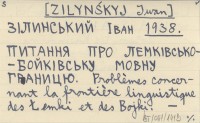 [ZILYNSKYJ Iwan]
ЗІЛИНСЬКИЙ ІВАН 1938.
ПИТАННЯ ПРО ЛЕМКІВСЬКО-
-БОЙКІВСЬКУ МОВНУ
ГРАНИЦЮ. Problèmes concer-
nant la frontière linguistique
des Łemki et des Bojki. —